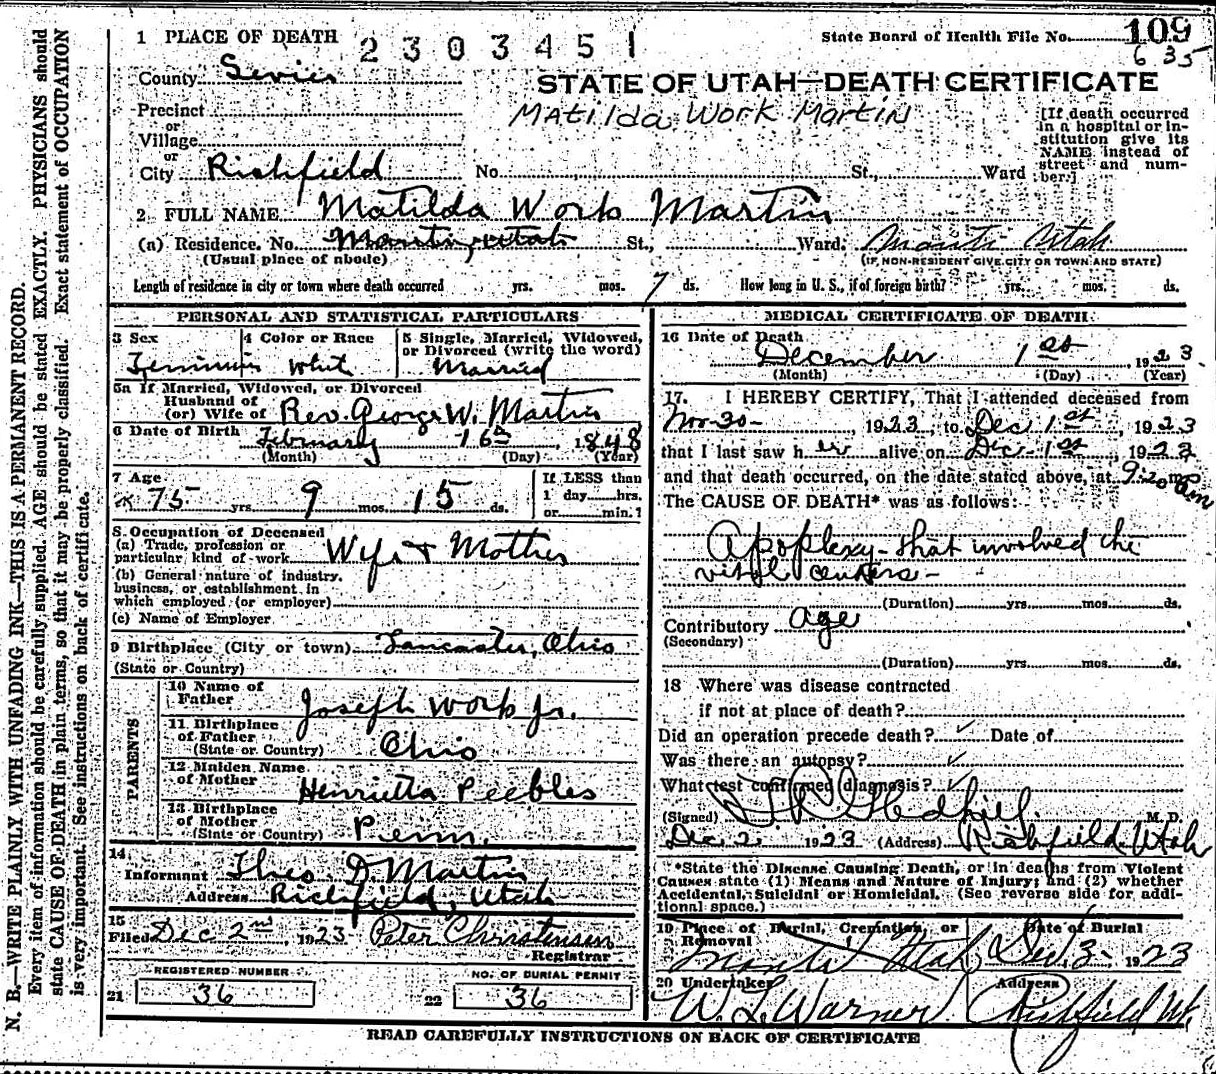 1 PLACE OF DEATH 2303451 State Board of Health File No. 109
6 35
County Sevier
STATE OF UTAH—DEATH CERTIFICATE
Precinct
or
Matilda Work Martin
Village
or
City Richfield No. St., Ward
[If death occurred
in a hospital or in-
stitution give its
NAME instead of
street and num-
ber.]
2 FULL NAME Matilda Work Martin
(a) Residence. No. Manti, Utah St., Ward. Manti Utah
(Usual place of abode) (IF NON-RESIDENT GIVE CITY OR TOWN AND STATE)
Length of residence in city or town where death occurred yrs. mos. 7 ds. How long in U. S., if of foreign birth? yrs. mos. ds.
PERSONAL AND STATISTICAL PARTICULARS
3 Sex 4 Color or Race 5 Single, Married, Widowed,
or Divorced (write the word)
White Married
5a If Married, Widowed, or Divorced
Husband of
(or) Wife of Rev. George W. Martin
6 Date of Birth February 16 1848
(Month) (Day) (Year)
7 Age If LESS than
75 yrs. 9 mos. 15 ds. 1 day hrs.
or min.?
8. Occupation of Deceased
(a) Trade, profession or
particular kind of work Wife & Mother
(b) General nature of industry,
business, or establishment in
which employed (or employer)
(c) Name of Employer
9 Birthplace (City or town) Lancaster, Ohio
(State or Country)
PARENTS
10 Name of
Father Joseph Work Jr.
11 Birthplace
of Father
(State or Country) Ohio
12 Maiden Name
of Mother Henrietta Peebles
13 Birthplace
of Mother
(State or Country) Penn.
14
Informant Theo. D. Martin
Address Richfield, Utah
15
Filed Dec 2nd, 1923 Peter Christensen
Registrar
REGISTERED NUMBER NO. OF BURIAL PERMIT
21 36 22 36
MEDICAL CERTIFICATE OF DEATH
16 Date of Death
December 1st 1923
(Month) (Day) (Year)
17. I HEREBY CERTIFY, That I attended deceased from
Nov 30 - , 1923, to Dec 1st, 1923
that I last saw her alive on Dec 1st, 1923
and that death occurred, on the date stated above, at 9:20 am
The CAUSE OF DEATH* was as follows:
Apoplexy - that involved the
vital centers -
(Duration) yrs. mos. ds.
Contributory age
(Secondary)
(Duration) yrs. mos. ds.
18 Where was disease contracted
if not at place of death?
Did an operation precede death? ✓ Date of
Was there an autopsy? ✓
What test confirmed diagnosis? ✓
(Signed) M. D.
Dec 2, 1923 (Address) Richfield, Utah
*State the Disease Causing Death, or in deaths from Violent
Causes state (1) Means and Nature of Injury; and (2) whether
Accidental, Suicidal or Homicidal. (See reverse side for addi-
tional space.)
19 Place of Burial, Cremation, or
Removal Date of Burial
Manti Utah Dec. 3 - 1923
20 Undertaker Address
W. L. Warner Richfield Ut.
READ CAREFULLY INSTRUCTIONS ON BACK OF CERTIFICATE
N. B.—WRITE PLAINLY WITH UNFADING INK—THIS IS A PERMANENT RECORD.
Every item of information should be carefully supplied. AGE should be stated EXACTLY. PHYSICIANS should
state CAUSE OF DEATH in plain terms, so that it may be properly classified. Exact statement of OCCUPATION
is very important. See instructions on back of certificate.